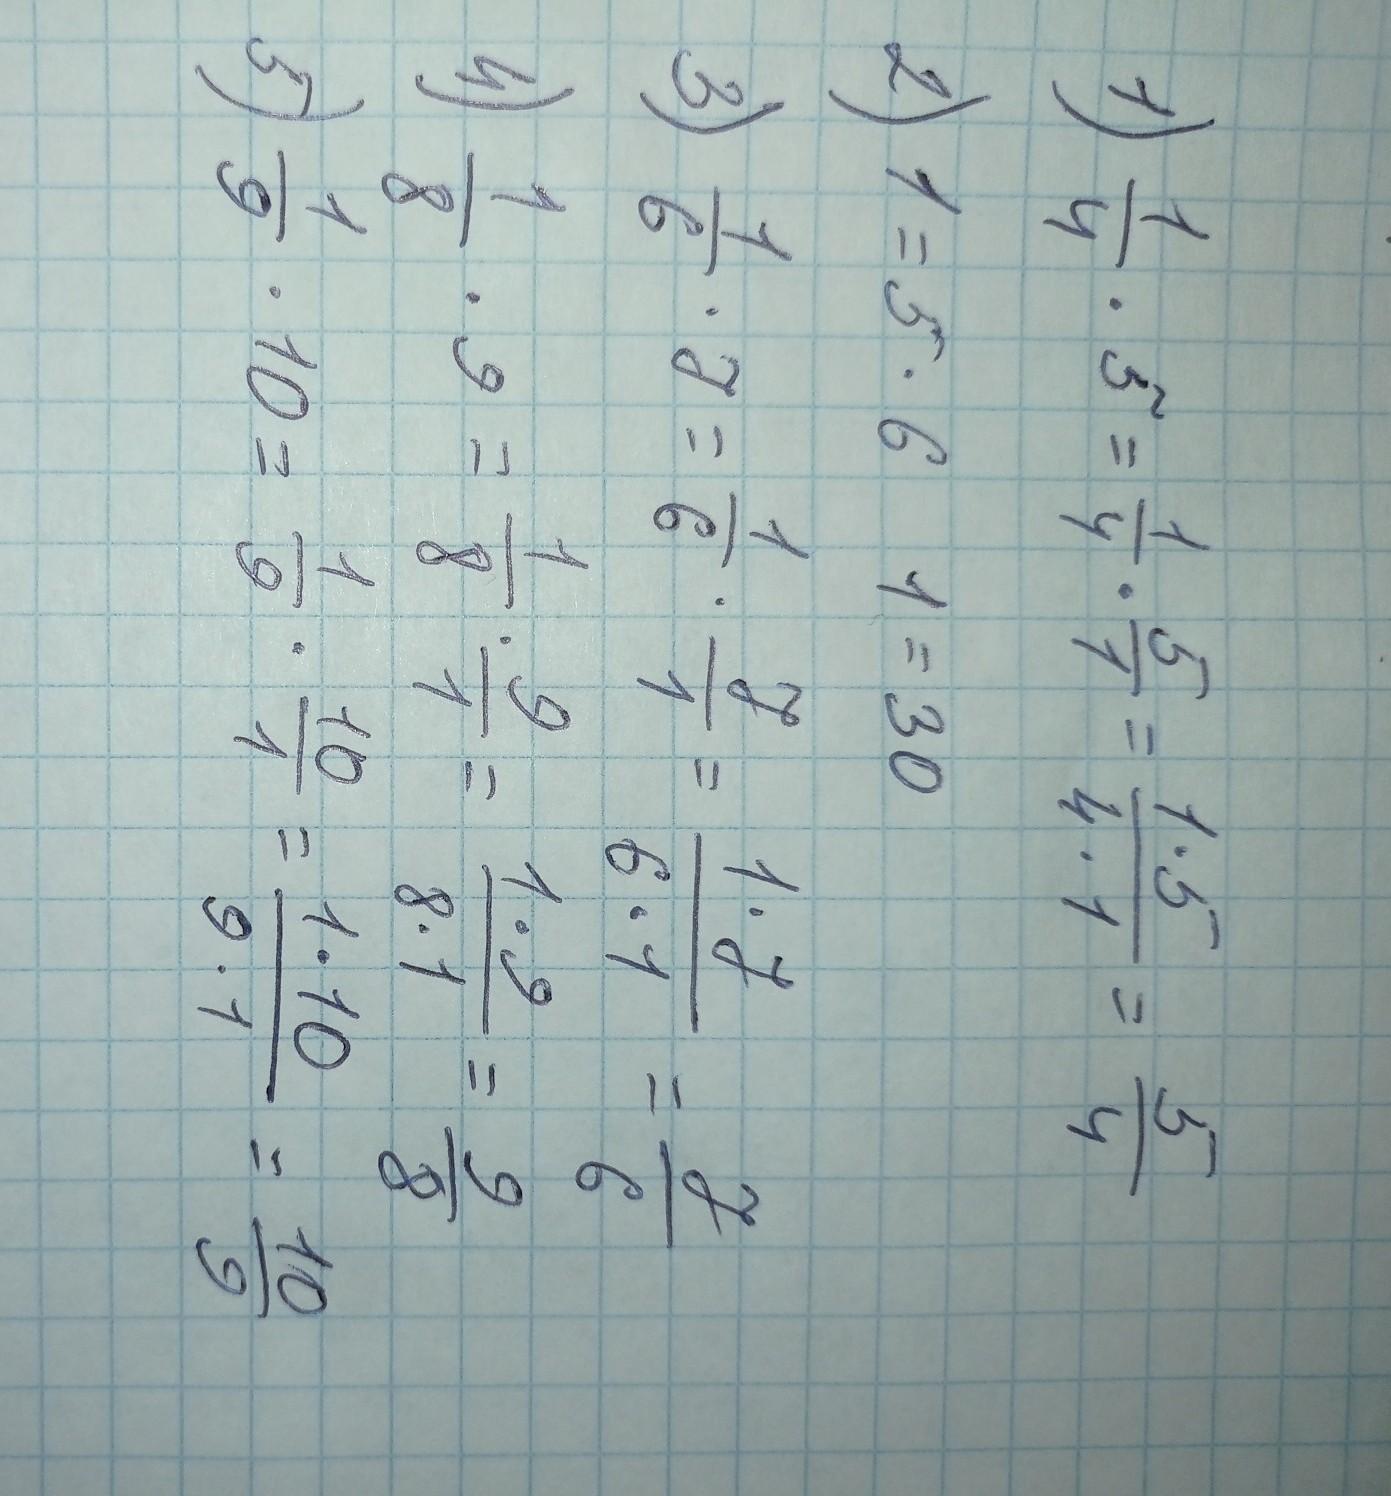 1) 1/4 · 5 = 1/4 · 5/1 = (1·5)/(4·1) = 5/4
2) 1 = 5 · 6 1 = 30
3) 1/6 · 7 = 1/6 · 7/1 = (1·7)/(6·1) = 7/6
4) 1/8 · 9 = 1/8 · 9/1 = (1·9)/(8·1) = 9/8
5) 1/9 · 10 = 1/9 · 10/1 = (1·10)/(9·1) = 10/9